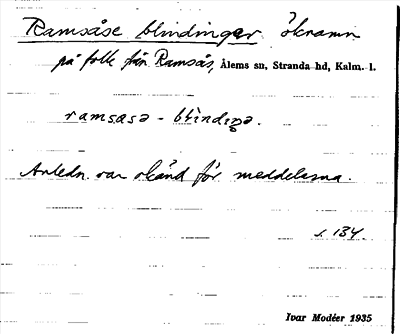 Ramsåse blindingar öknamn
på folk från Ramsås, Ålems sn, Stranda hd, Kalm. l.
ramsasə - blindiŋə.
Anledn. var okänd för meddelarna.
s. 134.
Ivar Modéer 1935